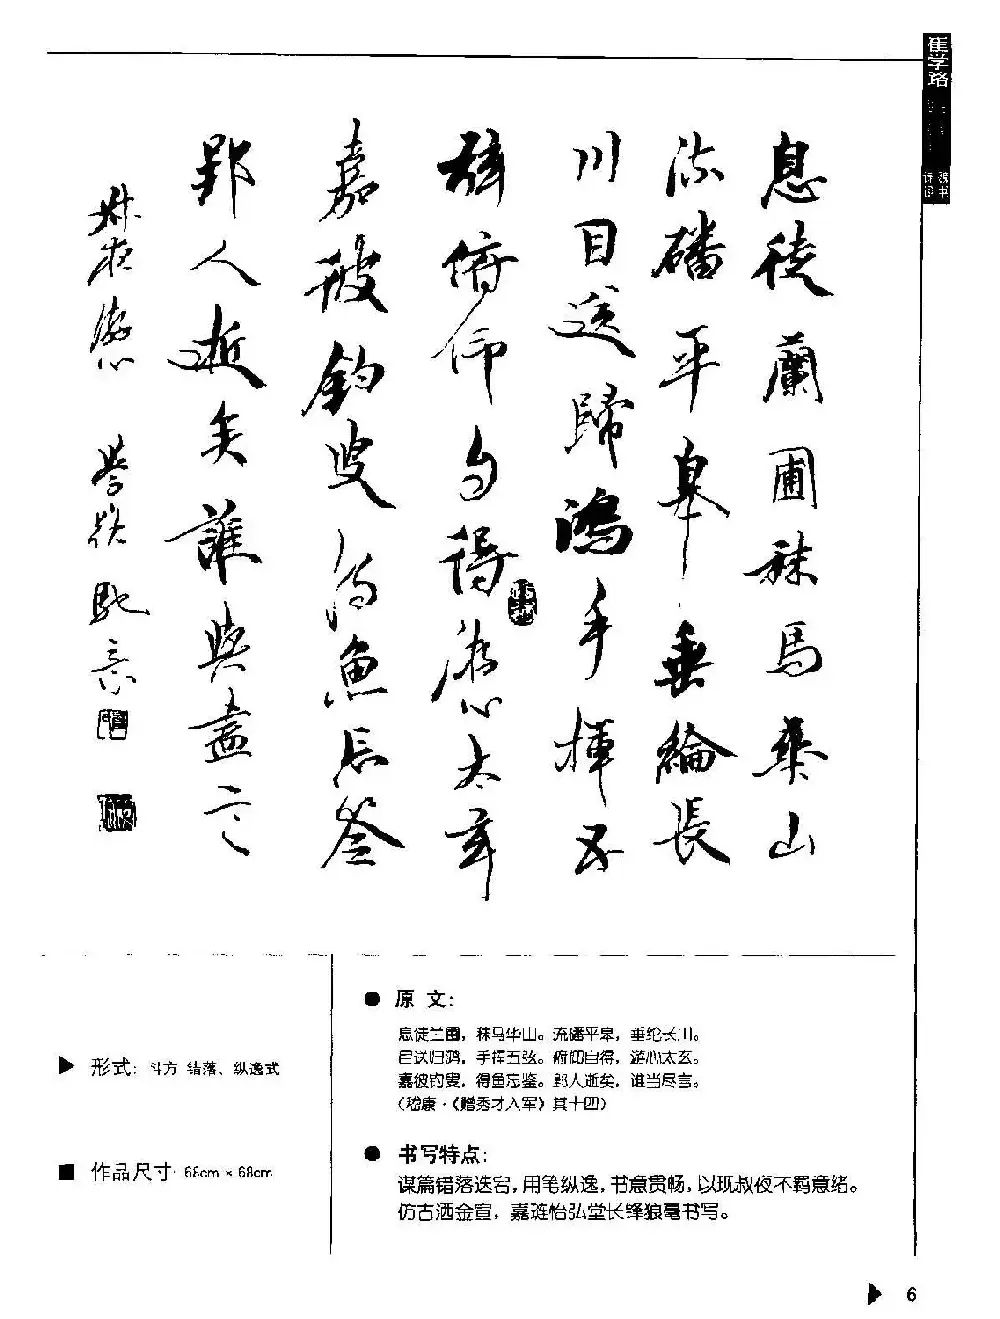 崔学路
息徒蘭圃秣馬華山
流磻平皋垂綸長
川目送歸鴻手揮五
弦俯仰自得游心太玄
嘉彼釣叟得魚忘筌
郢人逝矣誰與盡言
叔夜游心 學路 馳意
▶ 形式: 斗方 错落、纵逸式
■ 作品尺寸: 68cm × 68cm
● 原 文:
息徒兰圃，秣马华山。流磻平皋，垂纶长川。
目送归鸿，手挥五弦。俯仰自得，游心太玄。
嘉彼钓叟，得鱼忘鉴。郢人逝矣，谁当尽言。
（嵇康·《赠秀才入军》其十四）
● 书写特点:
谋篇错落迭宕，用笔纵逸，书意贯畅，以现叔夜不羁意绪。
仿古洒金宣，嘉琏怡弘堂长锋狼毫书写。
▶ 6